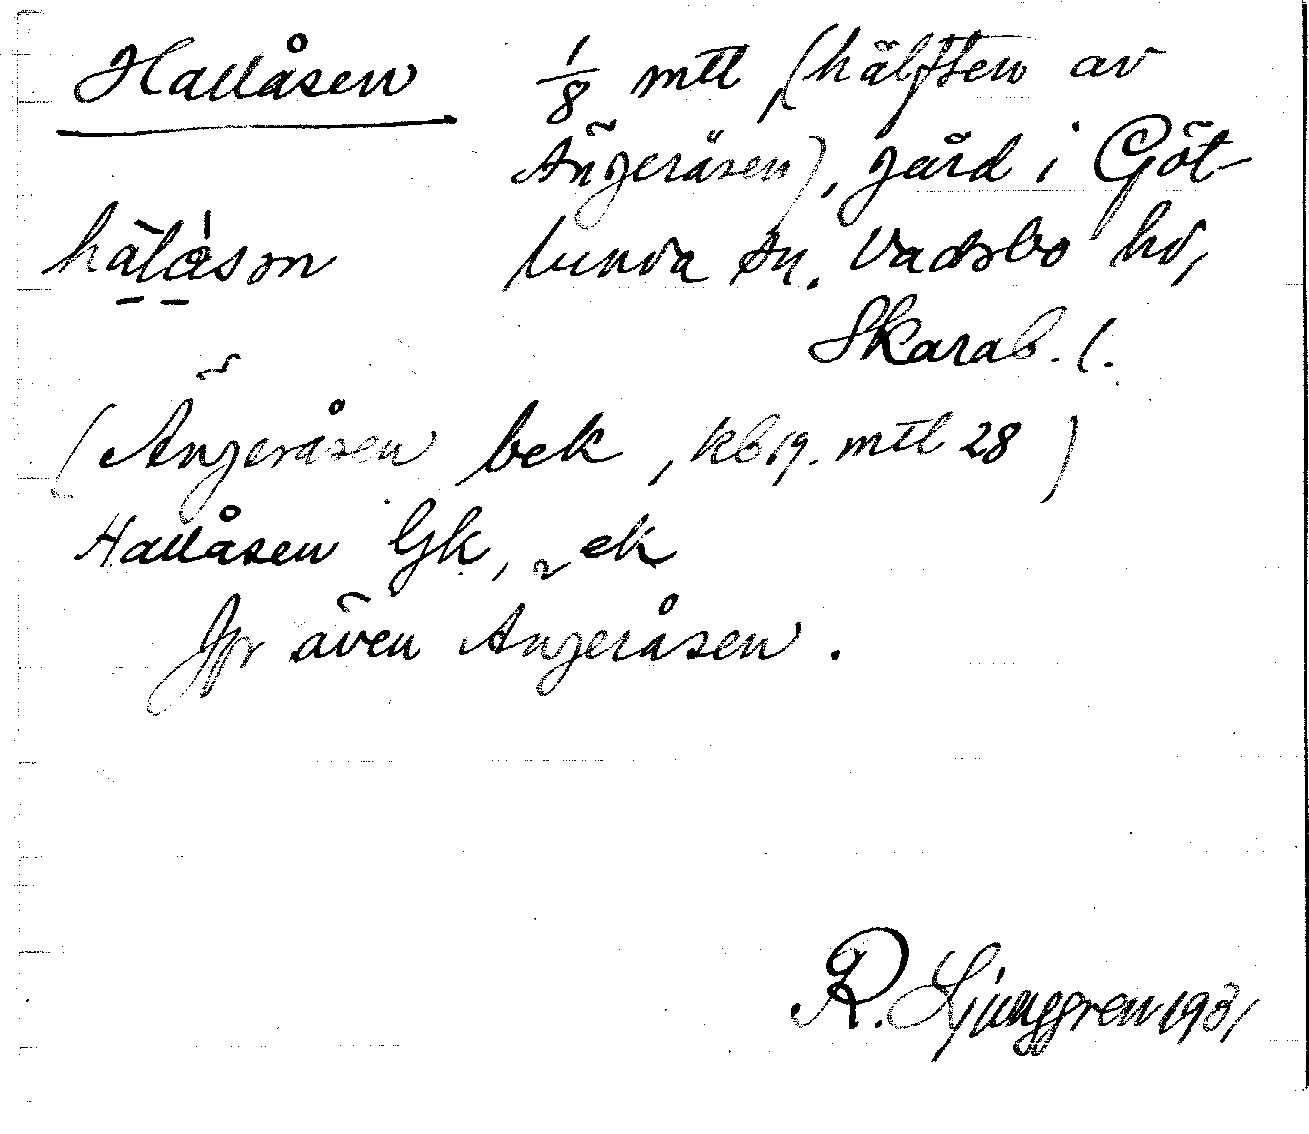 Hallåsen 1/8 mtl, (hälften av
Ängeråsen), gård i Göt-
hālàsən lunda sn. Vadsbo hd,
Skarab. l.
(Ängeråsen bek, kb 19. mtl 28)
Hallåsen Gk, ek
Jfr även Ängeråsen.
R. Ljunggren 1931